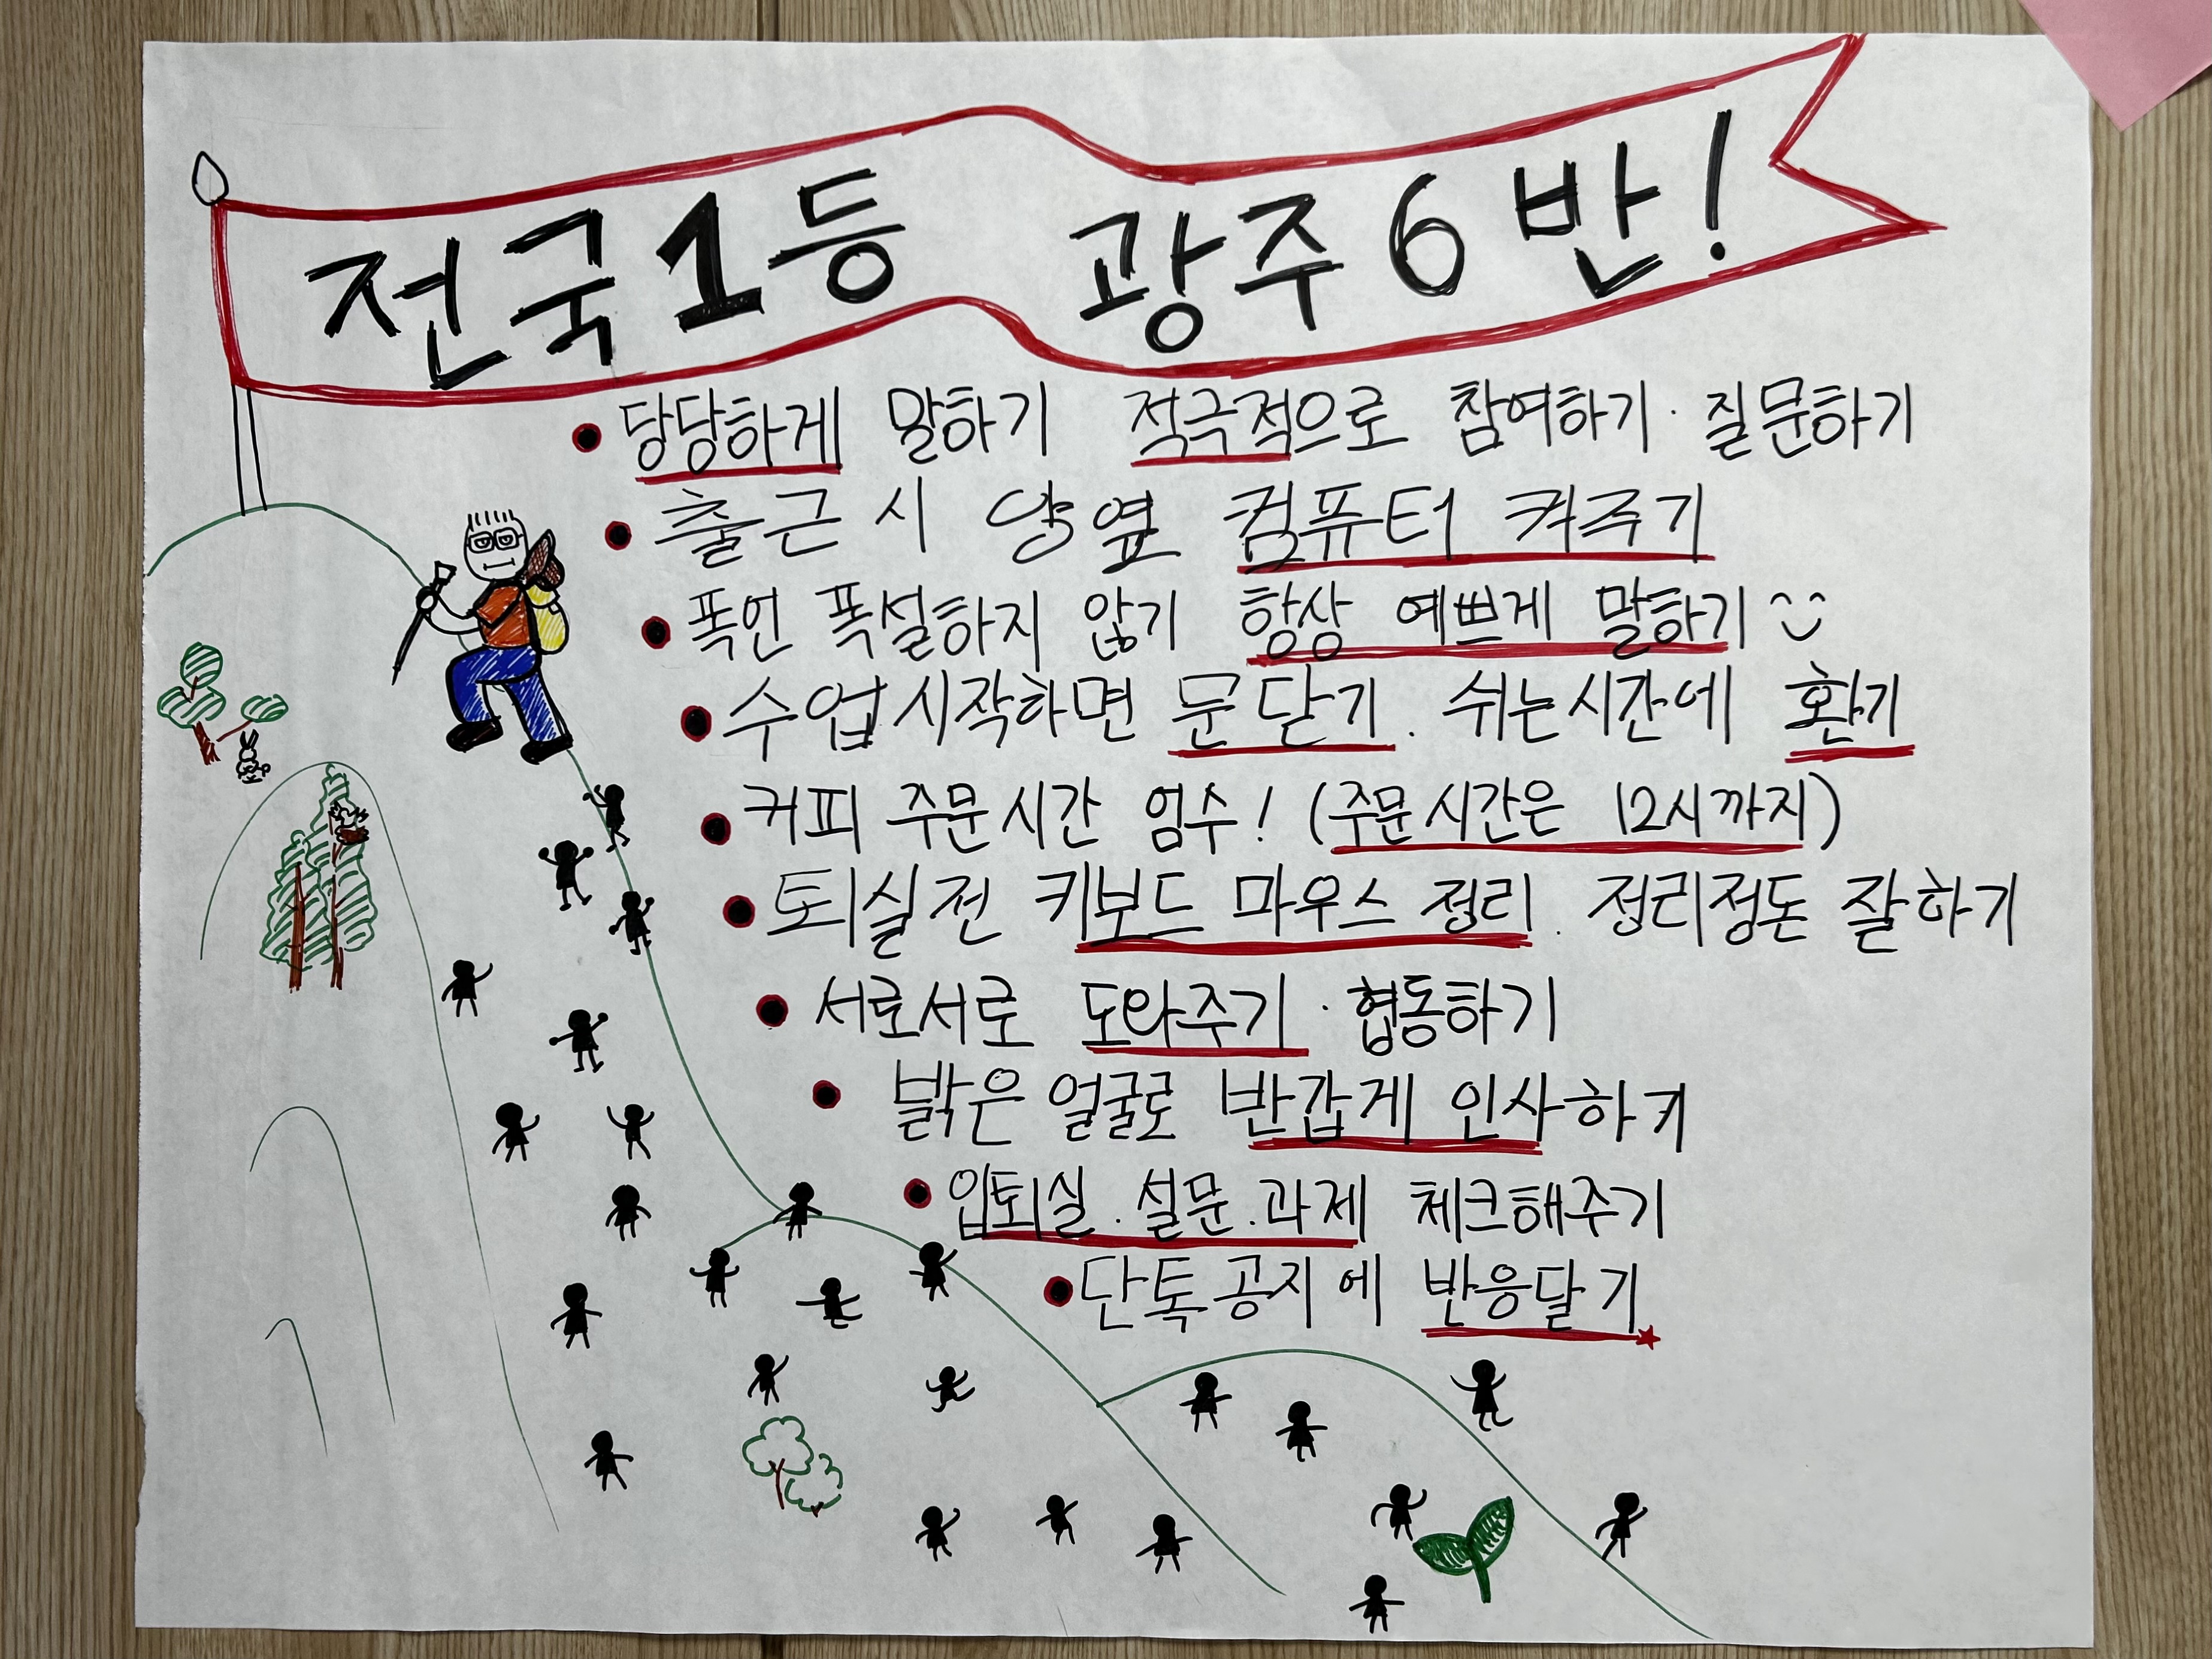 전국1등 광주6반!
• 당당하게 말하기 적극적으로 참여하기 · 질문하기
• 출근 시 양옆 컴퓨터 켜주기
• 폭언 폭설하지 않기 항상 예쁘게 말하기
• 수업시작하면 문닫기. 쉬는시간에 환기
• 커피 주문시간 엄수! (주문시간은 12시까지)
• 퇴실 전 키보드 마우스 정리. 정리정돈 잘하기
• 서로서로 도와주기 · 협동하기
• 밝은 얼굴로 반갑게 인사하기
• 입퇴실. 설문. 과제 체크해주기
• 단톡공지에 반응달기